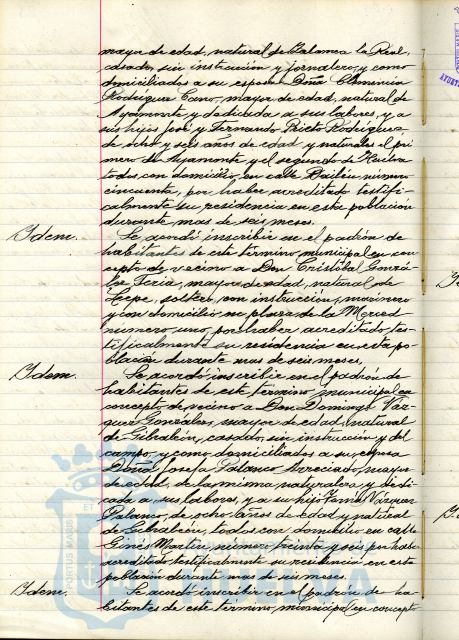 mayor de edad, natural de Zalamea la Real,
casado, sin instrucción y jornalero, y como
domiciliados a su esposa Doña Clemencia
Rodríguez Cano, mayor de edad, natural de
Ayamonte y dedicada a sus labores, y a
sus hijos José y Fernando Prieto Rodríguez
de ocho y seis años de edad y naturales el pri
mero de Ayamonte y el segundo de Huelva
todos con domicilio en calle Bailén número
cincuenta, por haber acreditado testifi-
calmente su residencia en esta población
durante mas de seis meses.
Idem.
Se acordó inscribir en el padrón de
habitantes de este término municipal en con
cepto de vecino a Don Cristóbal Gonzá-
lez Feria, mayor de edad, natural de
Lepe, soltero, con instrucción, marinero
y con domicilio en plaza de la Merced
número uno, por haber acreditado tes-
tificalmente su residencia en esta po-
blación durante mas de seis meses.
Idem.
Se acordó inscribir en el padrón de
habitantes de este término municipal en
concepto de vecino a Don Domingo Váz-
quez González, mayor de edad, natural
de Gibraleón, casado, sin instrucción y del
campo, y como domiciliados a su esposa
Doña Josefa Palanco mayor
de edad, de la misma naturaleza y dedi-
cada a sus labores, y a su hijo Vázquez
de ocho años de edad y natural
de Gibraleón, todos con domicilio en calle
Ginés Martín, número treinta y seis por haber
acreditado testificalmente su residencia en esta
población durante mas de seis meses.
Idem.
Se acordó inscribir en el padrón de ha-
bitantes de este término municipal en concepto
PORTUS MARIS ET